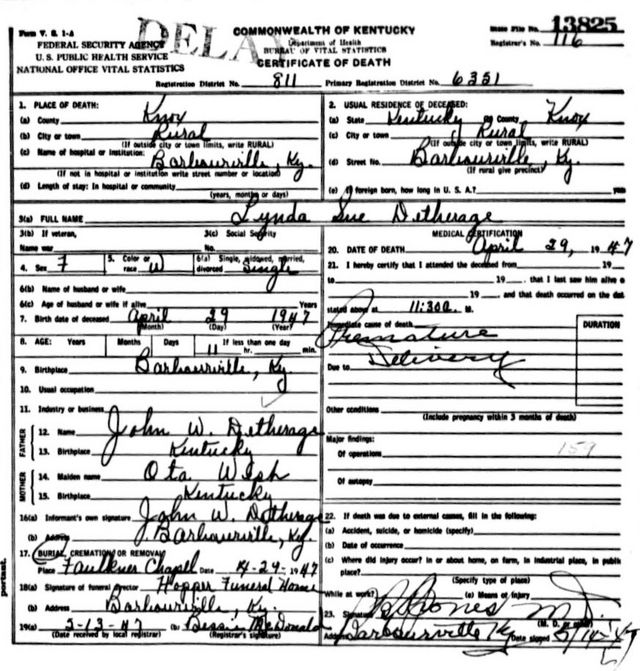 Form V. S. 1-A
DELA
COMMONWEALTH OF KENTUCKY
State File No. 13825
FEDERAL SECURITY AGENCY
Department of Health
Registrar's No. 116
U. S. PUBLIC HEALTH SERVICE
BUREAU OF VITAL STATISTICS
NATIONAL OFFICE VITAL STATISTICS
CERTIFICATE OF DEATH
Registration District No. 811 Primary Registration District No. 6351
1. PLACE OF DEATH:
(a) County Knox
(b) City or town Rural
(If outside city or town limits, write RURAL)
(c) Name of hospital or institution: Barbourville, Ky.
(If not in hospital or institution write street number or location)
(d) Length of stay: In hospital or community
(years, months or days)
2. USUAL RESIDENCE OF DECEASED:
(a) State Kentucky (b) County Knox
(c) City or town Rural
(If outside city or town limits, write RURAL)
(d) Street No. Barbourville, Ky.
(If rural give precinct)
(e) If foreign born, how long in U. S. A.?
3(a) FULL NAME Lynda Sue Detherage
3(b) If veteran, 3(c) Social Security
Name war No.
4. Sex F 5. Color or race W 6(a) Single, widowed, married, divorced Single
6(b) Name of husband or wife
6(c) Age of husband or wife if alive Years
7. Birth date of deceased April 29 1947
(Month) (Day) (Year)
8. AGE: Years Months Days If less than one day
11 hr. min.
9. Birthplace Barbourville, Ky
10. Usual occupation
11. Industry or business
FATHER
12. Name John W. Detherage
13. Birthplace Kentucky
MOTHER
14. Maiden name Ota
15. Birthplace Kentucky
16(a) Informant's own signature John W. Detherage
(b) Address Barbourville, Ky.
17. BURIAL, CREMATION OR REMOVAL
Place Faulkner Chapel Date 4-29-1947
18(a) Signature of funeral director Hopper Funeral Home
(b) Address Barbourville, Ky.
19(a) 5-13-47 (b) Bessie McDonald
(Date received by local registrar) (Registrar's signature)
MEDICAL CERTIFICATION
20. DATE OF DEATH April 29, 1947
21. I hereby certify that I attended the deceased from 19
to 19 , that I last saw him alive on
19 , and that death occurred on the date
stated above at 11:30a. M.
Immediate cause of death Premature
Delivery
DURATION
Due to
Other conditions
(Include pregnancy within 3 months of death)
Major findings:
Of operations 159
Of autopsy
22. If death was due to external causes, fill in the following:
(a) Accident, suicide, or homicide (specify)
(b) Date of occurrence
(c) Where did injury occur? In or about home, on farm, in industrial place, in public
place?
(Specify type of place)
While at work? (e) Means of Injury
23. Signature Jones M.D.
(M. D. or other)
Address Barbourville Ky Date signed 5/14-47
portant.